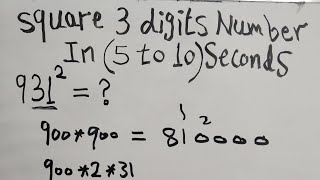 square 3 digits Number
In (5 to 10) Seconds
931² = ?
1 2
900*900 = 810000
900*2*31